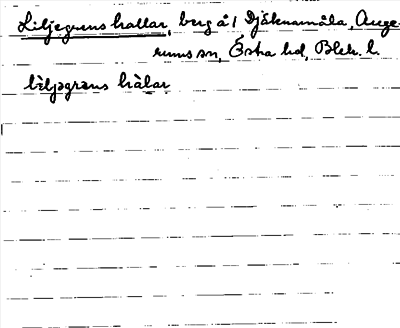 Liljegrens hallar, berg å 1 Djäknamåla, Auge-
rums sn, Östra hd, Blek. l.
liljegrens hàlar